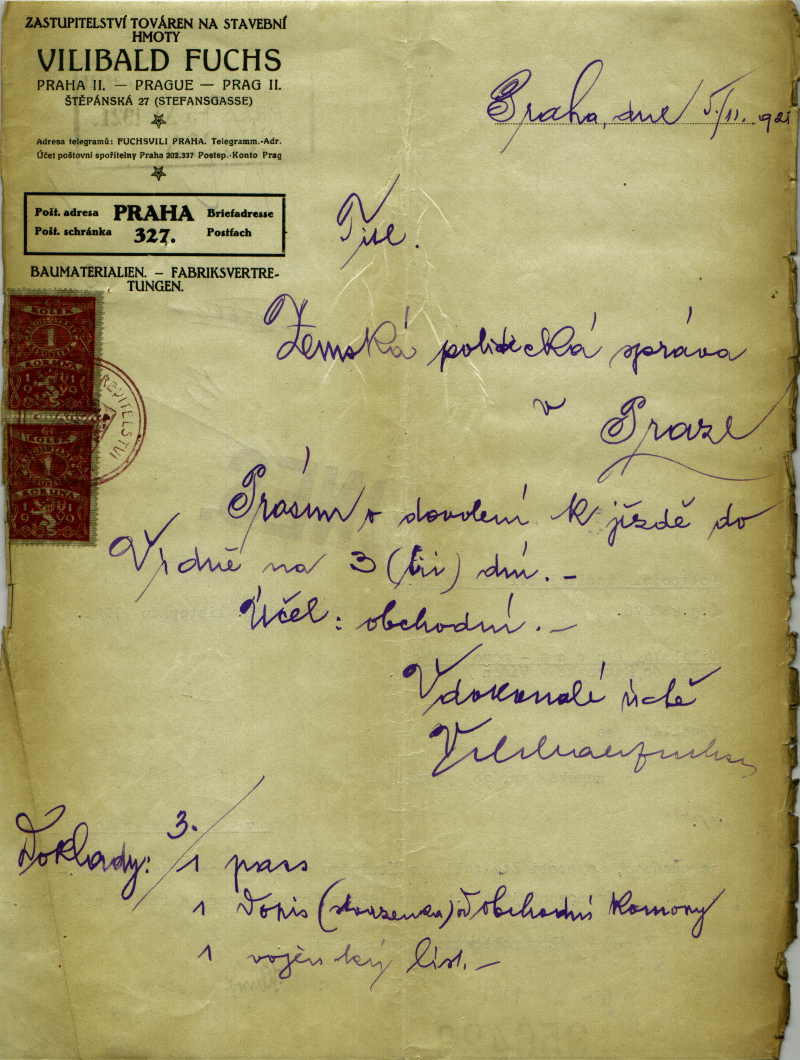 ZASTUPITELSTVÍ TOVÁREN NA STAVEBNÍ
HMOTY
VILIBALD FUCHS
PRAHA II. — PRAGUE — PRAG II.
ŠTĚPÁNSKÁ 27 (STEFANSGASSE)
Adresa telegramů: FUCHSVILI PRAHA. Telegramm.-Adr.
Účet poštovní spořitelny Praha 202.337 Postsp.-Konto Prag
Pošt. adresa PRAHA Briefadresse
Pošt. schránka 327. Postfach
BAUMATERIALIEN. – FABRIKSVERTRE-
TUNGEN.
Praha, dne 5./11. 1921
Titl.
Zemská politická správa
v Praze
KOLEK
1
KORUNA
KOLEK
1
KORUNA
Prosím o dovolení k jízdě do
Vídně na 3 (tři) dní. –
Účel: obchodní. –
V dokonalé úctě
Vilibald Fuchs
Doklady: 3./ 1 pass
1 Dopis (stvrzenka) od obchodní komory
1 vojenský list. –